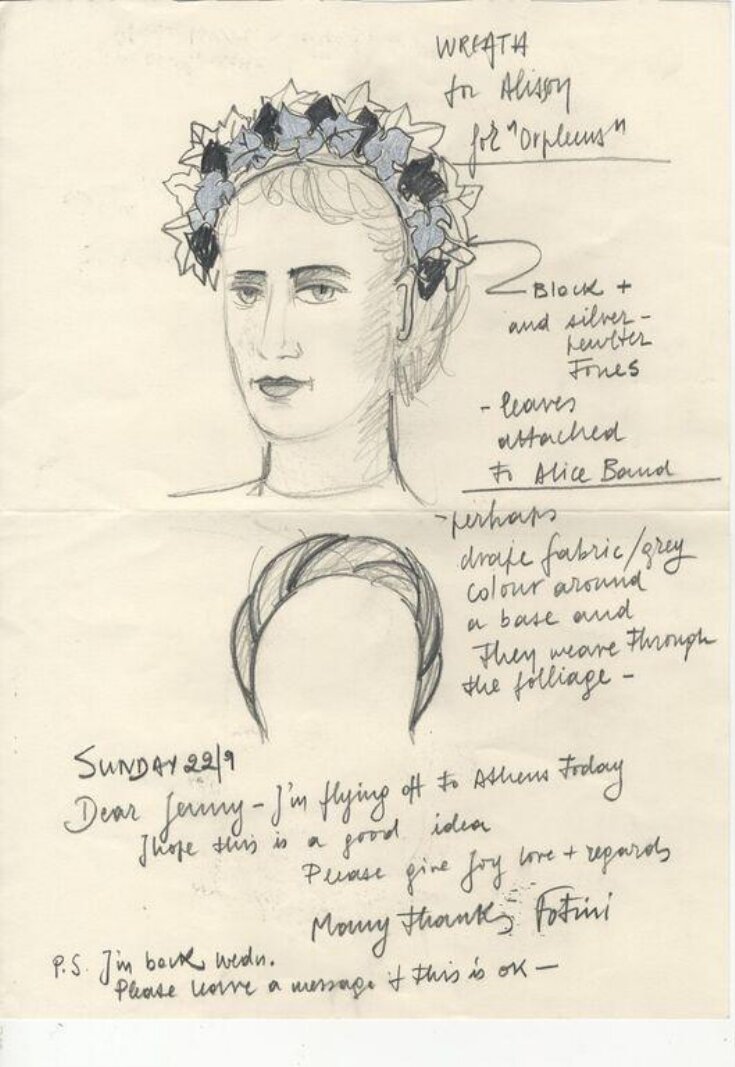 WREATH
for Alison
for "Orpheus"
Black +
and silver-
pewter
Tones
- leaves
attached
to Alice Band
- perhaps
drape fabric/grey
colour around
a base and
they weave through
the folliage -
SUNDAY 22/9
Dear Jenny - I'm flying off to Athens Today
I hope this is a good idea
Please give Joy love + regards
Many thanks Fotini
P.S. I'm back Wedn.
Please leave a message if this is OK -